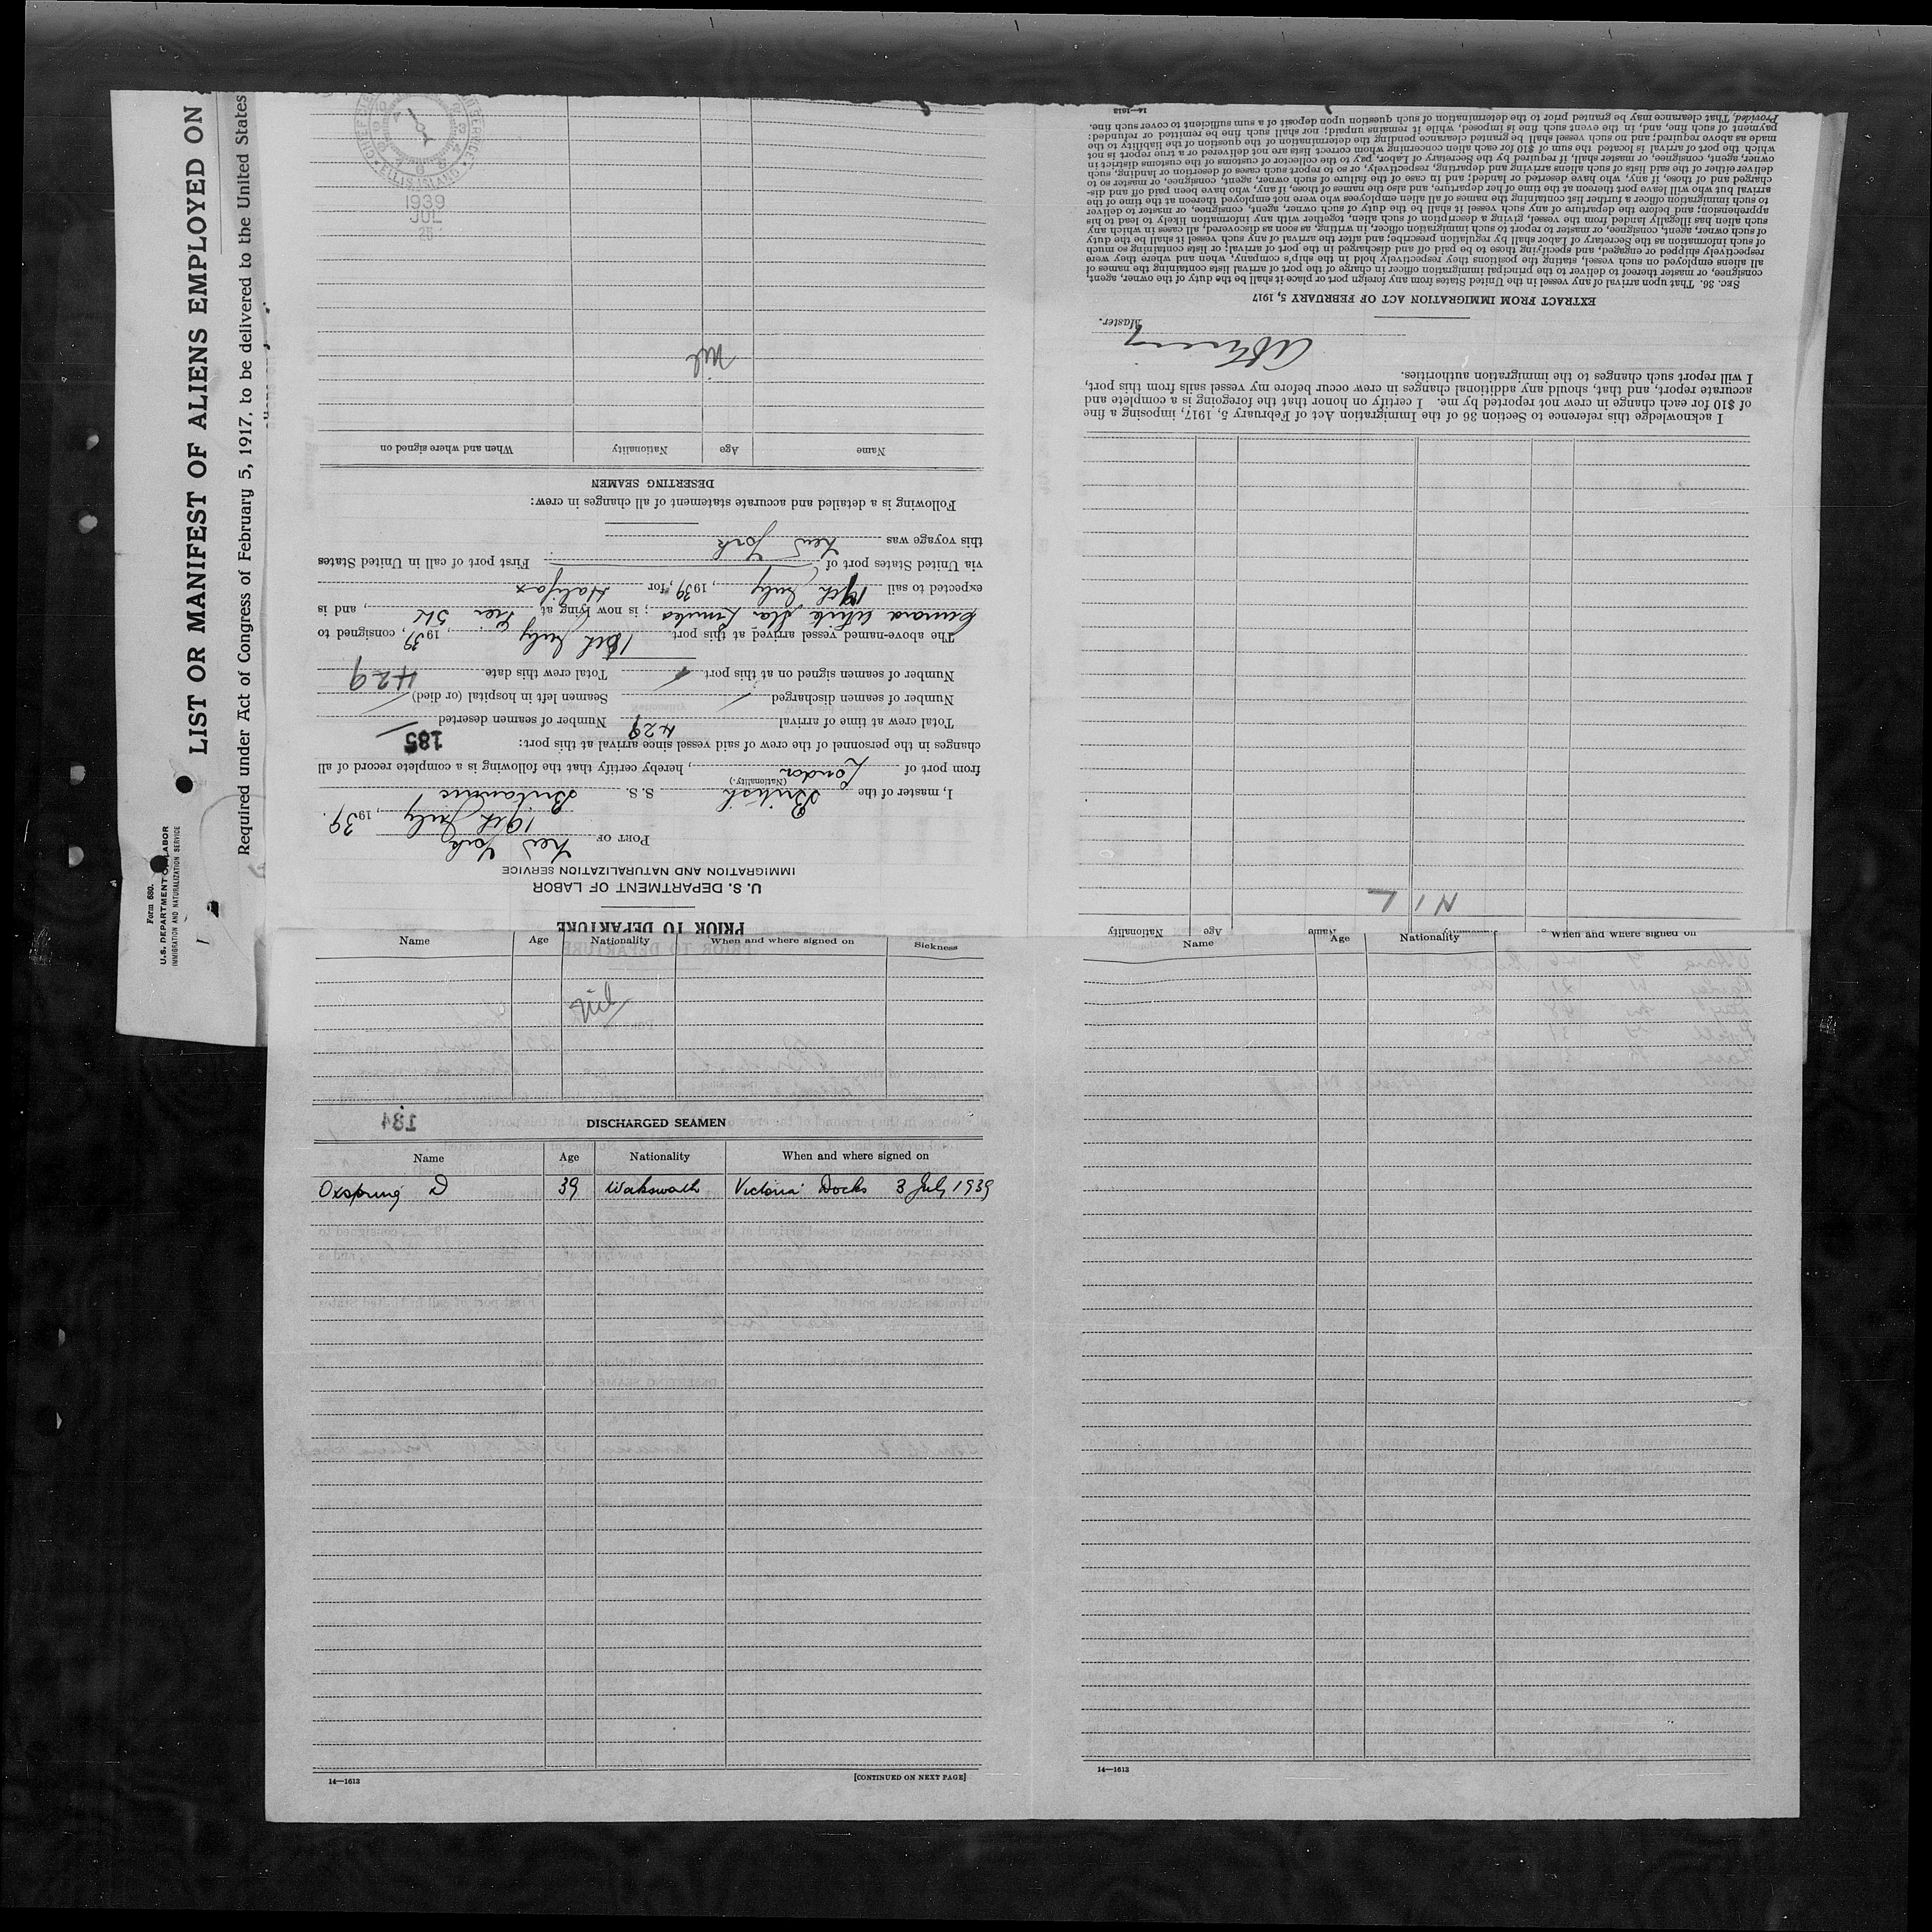 Form 680.
U.S. DEPARTMENT OF LABOR
IMMIGRATION AND NATURALIZATION SERVICE
LIST OR MANIFEST OF ALIENS EMPLOYED ON
Required under Act of Congress of February 5, 1917, to be delivered to the United States
PRIOR TO DEPARTURE
U. S. DEPARTMENT OF LABOR
IMMIGRATION AND NATURALIZATION SERVICE
PORT OF New York
19th July, 1939.
I, master of the British S. S. Britannic
(Nationality.)
from port of London, hereby certify that the following is a complete record of all
changes in the personnel of the crew of said vessel since arrival at this port:
185
Total crew at time of arrival 429 Number of seamen deserted
Number of seamen discharged Seamen left in hospital (or died)
Number of seamen signed on at this port Total crew this date 429
The above-named vessel arrived at this port 18th July, 1939, consigned to
Cunard White Star Limited; is now lying at Pier 54, and is
expected to sail 19th July, 1939, for Halifax
via United States port of First port of call in United States
this voyage was New York
Following is a detailed and accurate statement of all changes in crew:
DESERTING SEAMEN
Name Age Nationality When and where signed on
Nil
ELLIS ISLAND
1939
JUL
Name Age Nationality
NIL
I acknowledge this reference to Section 36 of the Immigration Act of February 5, 1917, imposing a fine
of $10 for each change in crew not reported by me. I certify on honor that the foregoing is a complete and
accurate report, and that, should any additional changes in crew occur before my vessel sails from this port,
I will report such changes to the immigration authorities.
Master.
EXTRACT FROM IMMIGRATION ACT OF FEBRUARY 5, 1917
SEC. 36. That upon arrival of any vessel in the United States from any foreign port or place it shall be the duty of the owner, agent,
consignee, or master thereof to deliver to the principal immigration officer in charge of the port of arrival lists containing the names of
all aliens employed on such vessel, stating the positions they respectively hold in the ship's company, when and where they were
respectively shipped or engaged, and specifying those to be paid off and discharged in the port of arrival; or lists containing so much
of such information as the Secretary of Labor shall by regulation prescribe; and after the arrival of any such vessel it shall be the duty
of such owner, agent, consignee, or master to report to such immigration officer, in writing, as soon as discovered, all cases in which any
such alien has illegally landed from the vessel, giving a description of such alien, together with any information likely to lead to his
apprehension; and before the departure of any such vessel it shall be the duty of such owner, agent, consignee, or master to deliver
to such immigration officer a further list containing the names of all alien employees who were not employed thereon at the time of the
arrival but who will leave port thereon at the time of her departure, and also the names of those, if any, who have been paid off and dis-
charged and of those, if any, who have deserted or landed; and in case of the failure of such owner, agent, consignee, or master so to
deliver either of the said lists of such aliens arriving and departing, respectively, or so to report such cases of desertion or landing, such
owner, agent, consignee, or master shall, if required by the Secretary of Labor, pay to the collector of customs of the customs district in
which the port of arrival is located the sum of $10 for each alien concerning whom correct lists are not delivered or a true report is not
made as above required; and no such vessel shall be granted clearance pending the determination of the question of the liability to the
payment of such fine, and, in the event such fine is imposed, while it remains unpaid; nor shall such fine be remitted or refunded:
Provided, That clearance may be granted prior to the determination of such question upon deposit of a sum sufficient to cover such fine.
14—1613
Name Age Nationality When and where signed on Sickness
Nil
184
DISCHARGED SEAMEN
Name Age Nationality When and where signed on
Oxspring D 39 Victoria Docks 3 July 1939
14—1613 [CONTINUED ON NEXT PAGE]
Name Age Nationality When and where signed on
14—1613